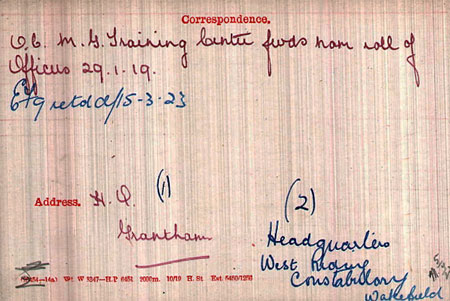 Correspondence.
O.C. M.G. Training Centre fwds nom roll of
Officers 29.1.19.
EF9 retd d/15-3-23
Address. H.Q. (1)
Grantham
(2)
Headquarters
West Riding
Constabulary
Wakefield
Wt. W 5347—H.P 6451 2000m. 10/19 H. St